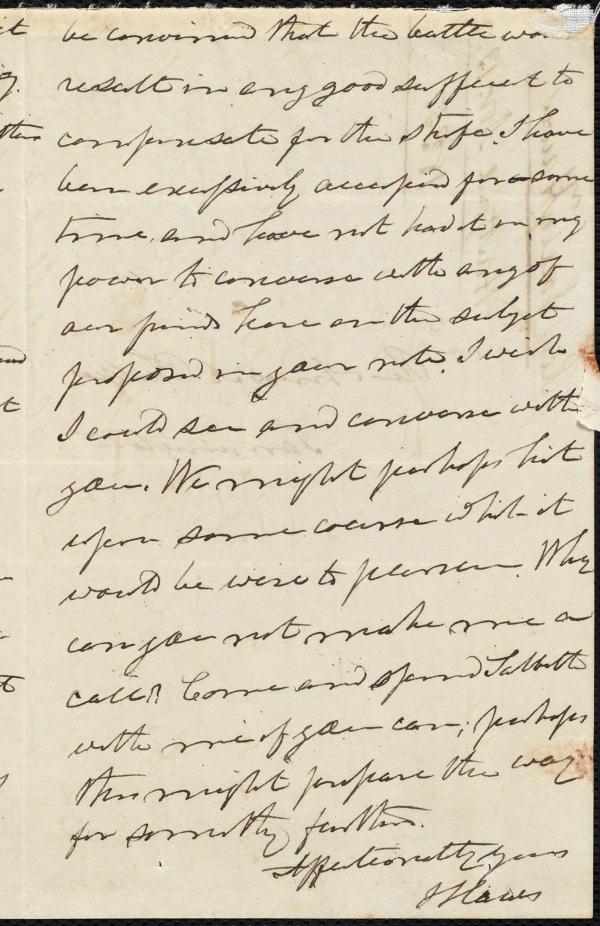 be convinced that the battle wo
result in any good sufficient to
compensate for the strife. I have
been excessively occupied for some
time, and have not had it in my
power to converse with any of
our friends here on the subject
proposed in your note. I wish
I could see and converse with
you. We might perhaps hit
upon some course which it
would be wise to pursue. Why
can you not make me a
call? Come and spend Sabbath
with me if you can; perhaps
this might prepare the way
for something further.
Affectionately yours
J Hawes